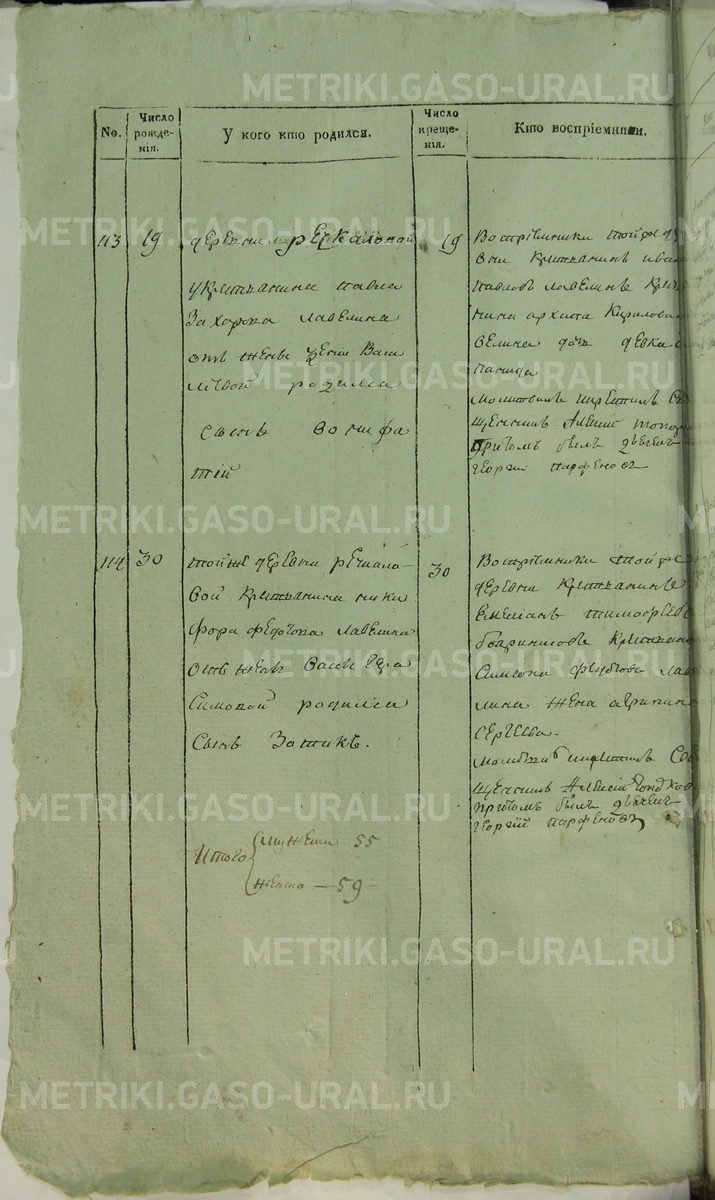 METRIKI.GASO-URAL.RU
No.
Число рожде-нія.
У кого кто родился.
Число креще-нія.
Кто воспріемники.
113
19
деревни речкаловой
у крестьянина павла
Захарова лавелина
отъ жены
родился
сынъ вонифа
тій
19
Воспріемники тойже де
вни крестьянинъ ива
павловъ лавелинъ крес
нина архипа кирилова
велина дочь девка
молитвилъ и крестилъ Св
щенникъ Алексій
притомъ былъ дьячекъ
георгій парфеновъ
114
30
тойже деревни речкало-
вой крестьянина ники
фора федотова лавелина
отъ жены
Симовой родился
Сынъ Зотикъ.
30
Воспріемники тойже
деревни крестьянинъ
тимофеевъ
крестьян
Симеона лав
лина жена агрипин
сергеева.
молитвилъ и крестилъ Св
щенникъ Алексій
притомъ былъ дьячекъ
георгій парфеновъ
Итого
мужеска 55
женска — 59